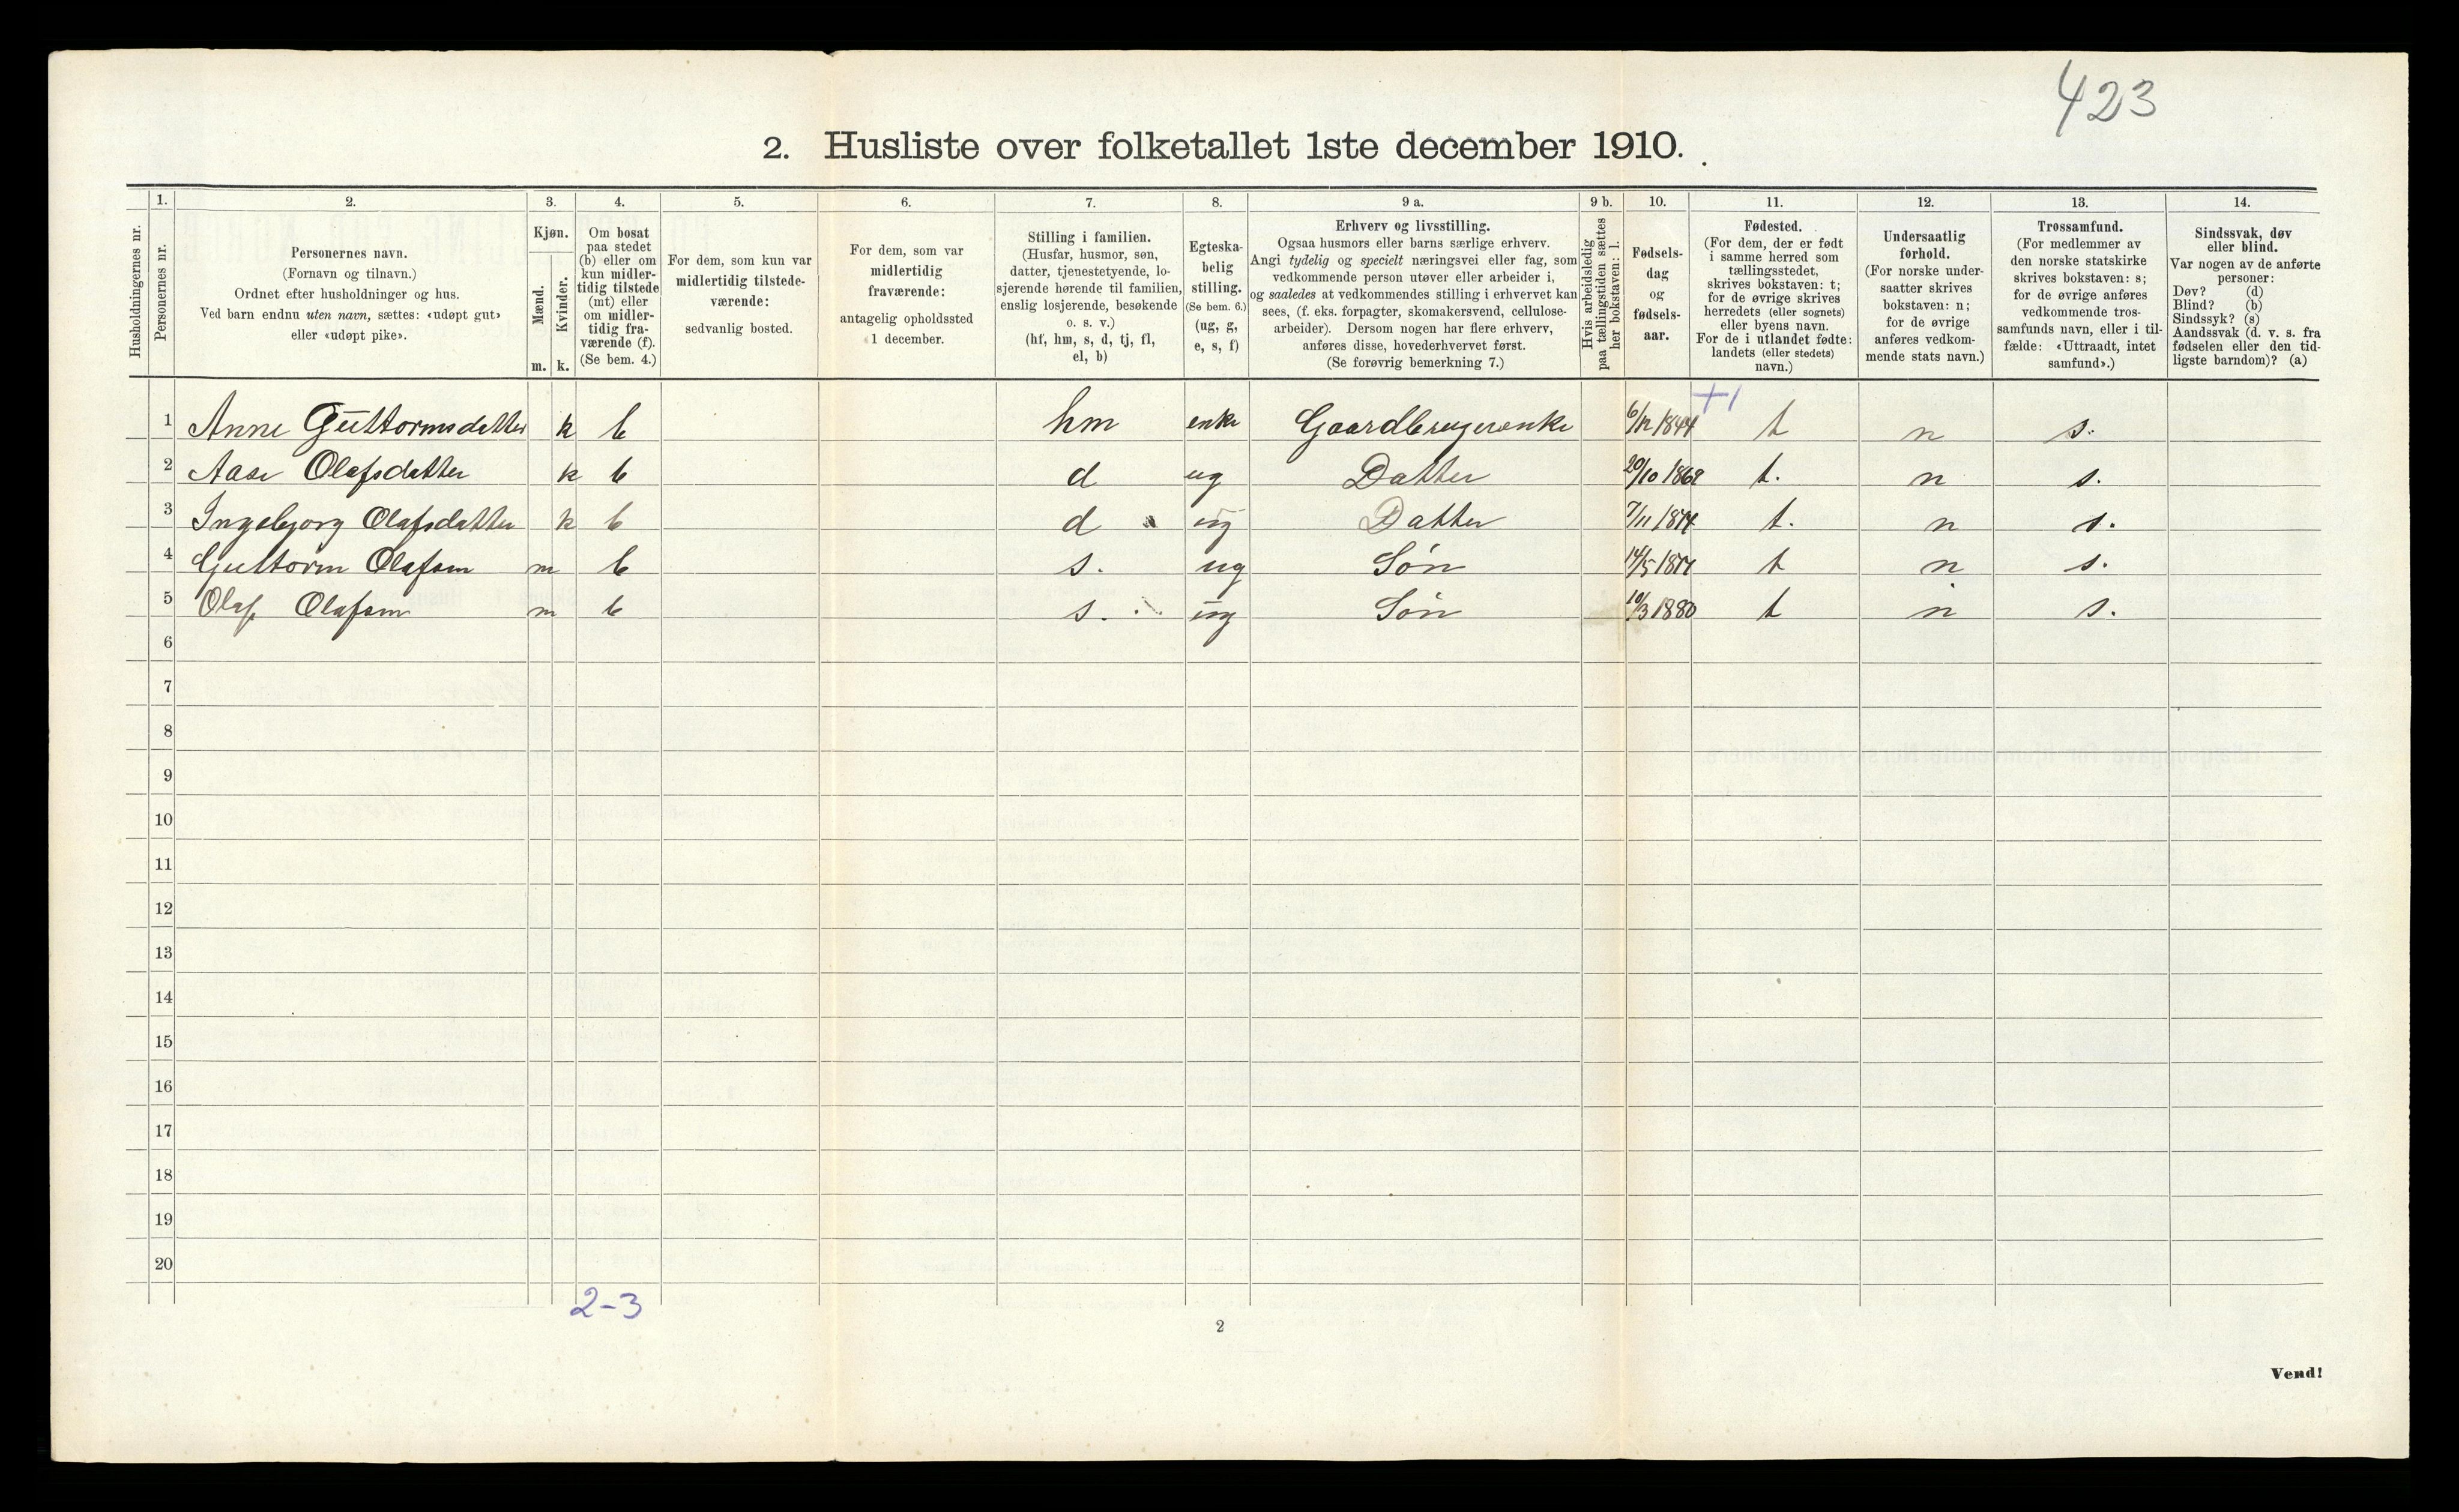 423
2. Husliste over folketallet 1ste december 1910.
Husholdningernes nr.
1.
Personernes nr.
2.
Personernes navn.
(Fornavn og tilnavn.)
Ordnet efter husholdninger og hus.
Ved barn endnu uten navn, sættes: «udøpt gut»
eller «udøpt pike».
3.
Kjøn.
Mænd.
Kvinder.
m. k.
4.
Om bosat
paa stedet
(b) eller om
kun midler-
tidig tilstede
(mt) eller
om midler-
tidig fra-
værende (f).
(Se bem. 4.)
5.
For dem, som kun var
midlertidig tilstede-
værende:
sedvanlig bosted.
6.
For dem, som var
midlertidig
fraværende:
antagelig opholdssted
1 december.
7.
Stilling i familien.
(Husfar, husmor, søn,
datter, tjenestetyende, lo-
sjerende hørende til familien,
enslig losjerende, besøkende
o. s. v.)
(hf, hm, s, d, tj, fl,
el, b)
8.
Egteska-
belig
stilling.
(Se bem. 6.)
(ug, g,
e, s, f)
9 a.
Erhverv og livsstilling.
Ogsaa husmors eller barns særlige erhverv.
Angi tydelig og specielt næringsvei eller fag, som
vedkommende person utøver eller arbeider i,
og saaledes at vedkommendes stilling i erhvervet kan
sees, (f. eks. forpagter, skomakersvend, cellulose-
arbeider). Dersom nogen har flere erhverv,
anføres disse, hovederhvervet først.
(Se forøvrig bemerkning 7.)
9 b.
Hvis arbeidsledig
paa tællingstiden sættes
her bokstaven: l.
10.
Fødsels-
dag
og
fødsels-
aar.
11.
Fødested.
(For dem, der er født
i samme herred som
tællingsstedet,
skrives bokstaven: t;
for de øvrige skrives
herredets (eller sognets)
eller byens navn.
For de i utlandet fødte:
landets (eller stedets)
navn.)
12.
Undersaatlig
forhold.
(For norske under-
saatter skrives
bokstaven: n;
for de øvrige
anføres vedkom-
mende stats navn.)
13.
Trossamfund.
(For medlemmer av
den norske statskirke
skrives bokstaven: s;
for de øvrige anføres
vedkommende tros-
samfunds navn, eller i til-
fælde: «Uttraadt, intet
samfund».)
14.
Sindssvak, døv
eller blind.
Var nogen av de anførte
personer:
Døv? (d)
Blind? (b)
Sindssyk? (s)
Aandssvak (d. v. s. fra
fødselen eller den tid-
ligste barndom)? (a)
+1
1 Anne Guttormsdatter k b hm enke Gaardbrugerenke 1844 t n s.
2 Aase Olafsdatter k b d ug Datter 20/10 t. n s.
3 Ingebjorg Olafsdatter k b d ug Datter 7/11 t. n s.
4 Guttorm Olafsen m b s. ug Søn 14/5 t n s.
5 Olaf Olafsen m b s. ug Søn 10/3 1880 t n s.
6
7
8
9
10
11
12
13
14
15
16
17
18
19
20
2-3
2
Vend!